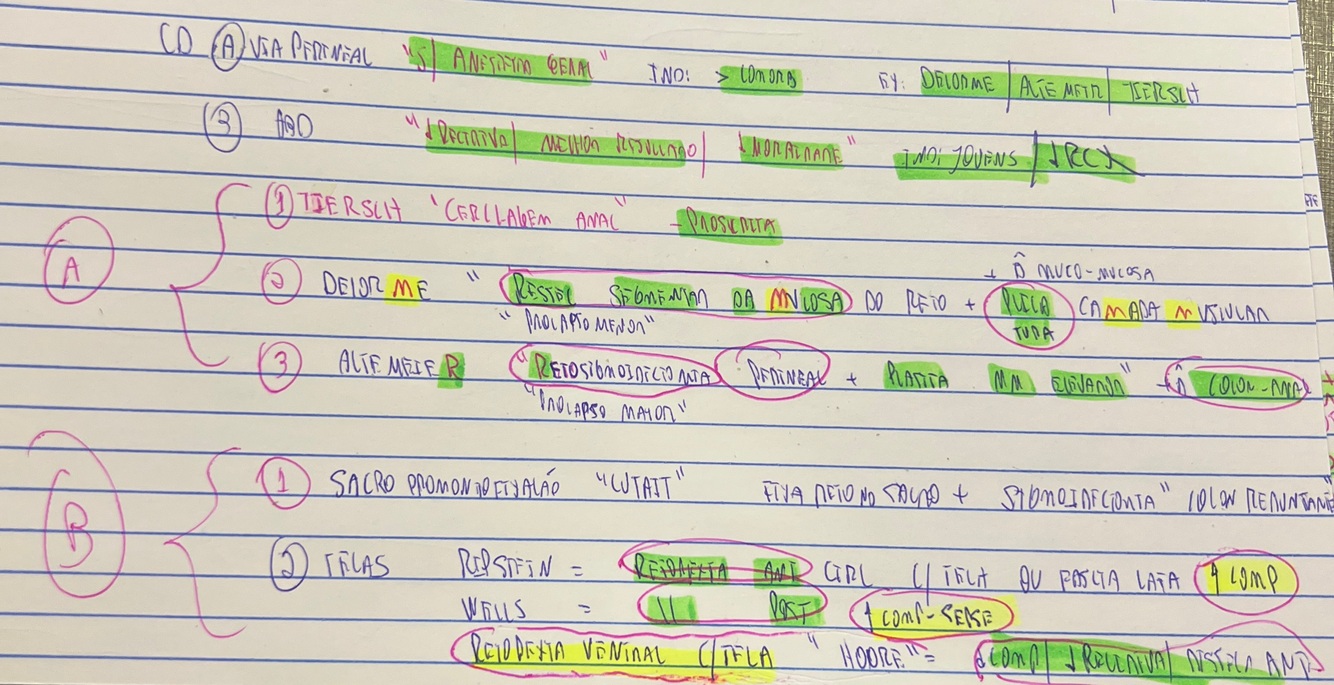 CD (A) VIA PERINEAL "S/ ANESTESIA GERAL" IND: > COMORB EX: DELORME / ALTEMEIR / TIERSCH
(B) ABD "↓ RECIDIVA / MELHOR RESULTADO / ↓ MORALIDADE" IND: JOVENS / ↓ RCX
(A) ① TIERSCH "CERCLAGEM ANAL" - PROSCRITA
+ Ô MUCO-MUCOSA
② DELORME "RESSEC SEGMENTAR DA MUCOSA DO RETO + PLICA TURA CAMADA MUSCULAR
"PROLAPSO MENOR"
③ ALTEMEIER "RETOSIGMOIDECTOMIA PERINEAL + PLASTIA MM ELEVADOR" + Ô COLON-ANAL
"PROLAPSO MAIOR"
(B) ① SACRO PROMONTOFIXAÇÃO "CUTAIT" FIXA RETO NO SACRO + SIGMOIDECTOMIA "COLON REDUNTANTE"
② TELAS RIPSTEIN = RETOPEXIA ANT CIRC C/ TELA OU FASCIA LATA ↑ COMP
WELLS = 11 POST ↑ COMP-SEPSE
RETOPEXIA VENTRAL C/ TELA "HOORE" = ↓ COMP / ↓ RECIDIVA / DISSECA ANT